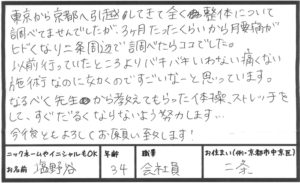 東京から京都へ引越してきて全く整体について
調べてませんでしたが、3ヶ月たったくらいから腰痛が
ヒドくなり二条周辺で調べたらココでした。
以前行っていたところよりバキバキしいわない痛くない
施術なのに効くのですごいなーと思っています。
なるべく先生から教えてもらった体操、ストレッチを
して、すぐだるくなりないよう努力します…
今後ともよろしくお願い致します！
ニックネームやイニシャルもOK 年齢 職業 お住まい(例・京都市中京区)
お名前 塩野谷 34 会社員 二条